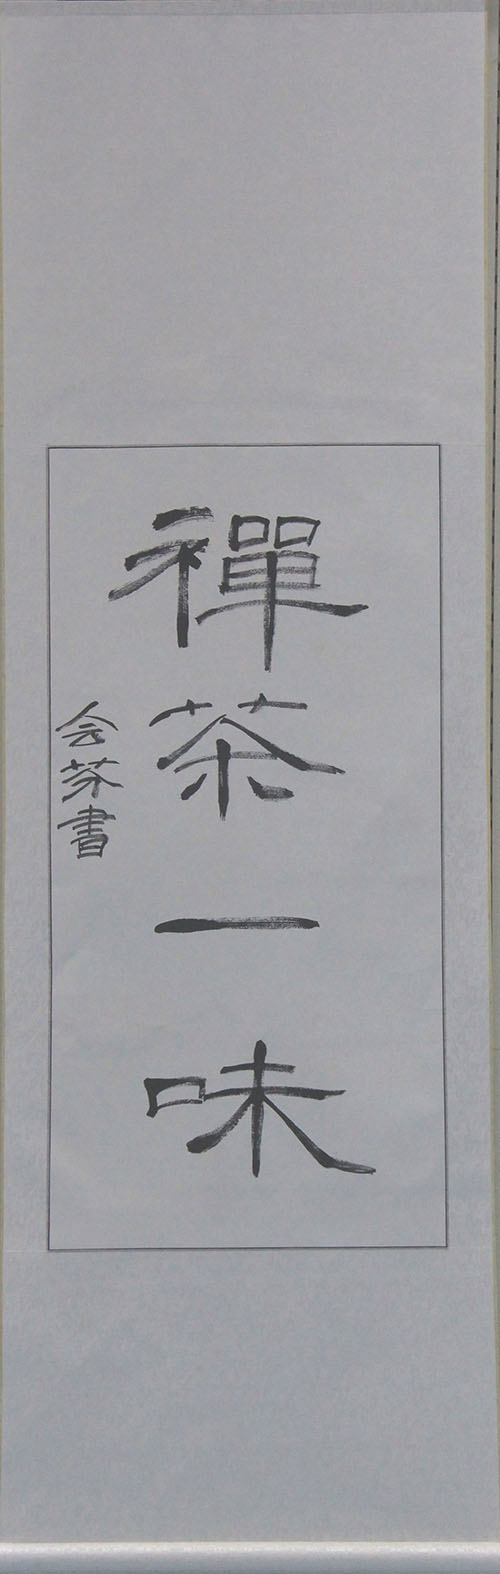 禪茶一味
会芬書